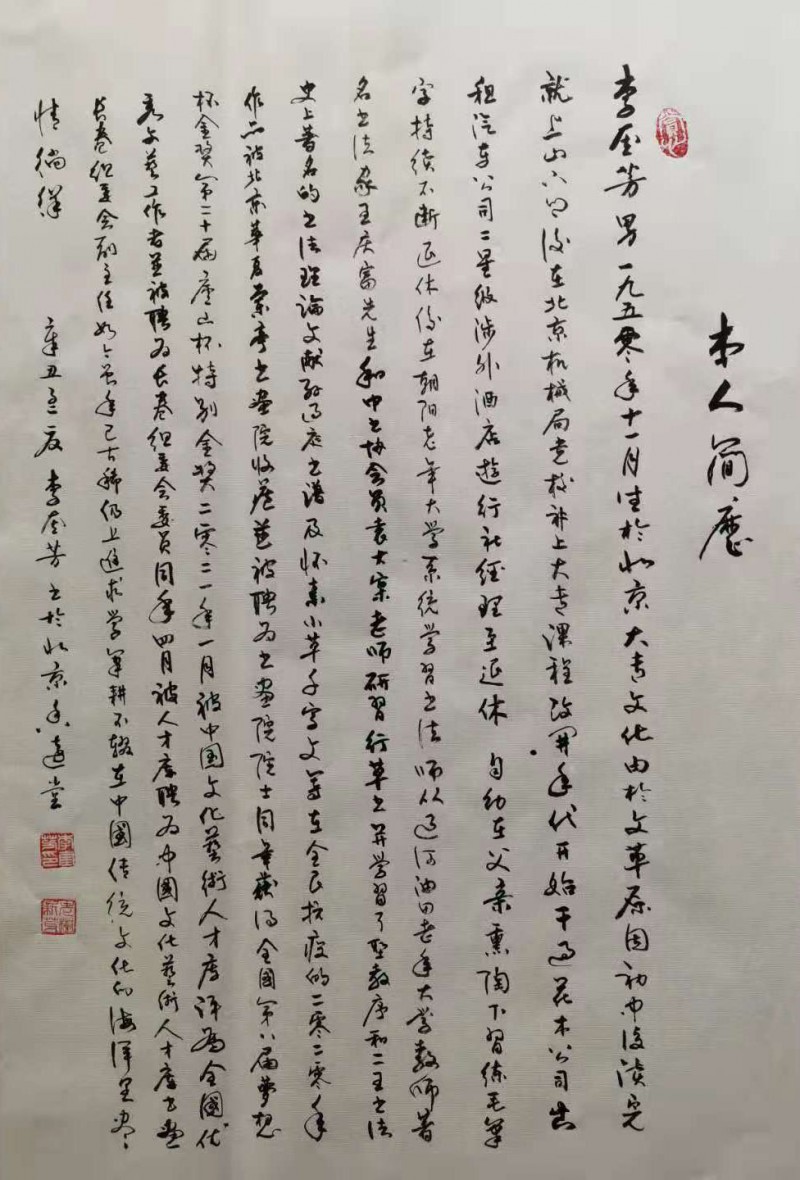 本人简历
李金芳男一九五零年十一月生於北京大专文化由於文革原因初中没读完
就上山下乡后在北京机械局党校补上大专课程改革年代开始干过花木公司出
租汽车公司二星级涉外酒店旅行社经理至退休自幼在父亲熏陶下习练毛笔
字持续不断退休后在朝阳老年大学系统学习书法师从辽河油田老年大学教师著
名书法家王庆富先生和中书协会员袁大家老师研习行草书并学习了圣教序和二王书法
史上著名的书法理论文献孙过庭书谱及怀素小草千字文等在全民抗疫的二零二零年
作品被北京华夏兰亭书画院收藏并被聘为书画院院士同年获得全国第八届梦想
杯金奖第二十届庐山杯特别金奖二零二一年一月被中国文化艺术人才库评为全国优
秀文艺工作者并被聘为长卷组委会委员同年四月被人才库聘为中国文化艺术人才库书画
长卷组委会副主任如今虽年已古稀仍上进求学笔耕不辍在中国传统文化的海洋里尽
情徜徉
辛丑孟夏李金芳书於北京